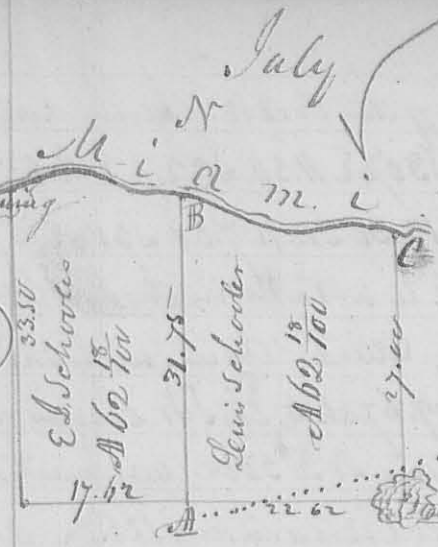 July
N
M i a m i
B
C
33.50
E D Schooler
A 62 18/100
31.75
Lewis Schooler
A 62 18/100
27.00
17.62
A
22 62